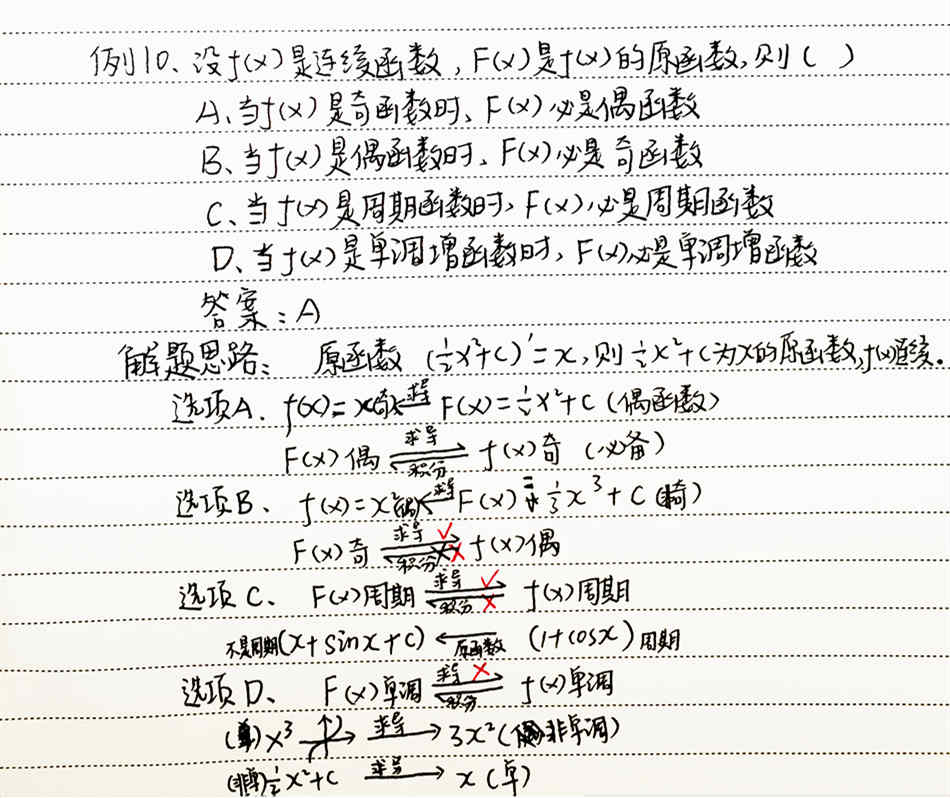 例10、设f(x)是连续函数,F(x)是f(x)的原函数,则( )
A、当f(x)是奇函数时、F(x)必是偶函数
B、当f(x)是偶函数时、F(x)必是奇函数
C、当f(x)是周期函数时、F(x)必是周期函数
D、当f(x)是单调增函数时,F(x)必是单调增函数
答案:A
解题思路: 原函数 (½x²+C)'=x,则½x²+C为x的原函数,f(x)连续.
选项A. f(x)=x(奇) ←求导 F(x)=½x²+C(偶函数)
F(x)偶 求导⇌积分 f(x)奇 (必备)
选项B、 f(x)=x² ←求导 F(x)=⅓x³+C
F(x)奇 求导✓⇌积分✗ f(x)偶
选项C、 F(x)周期 求导✓⇌积分✗ f(x)周期
不是周期(x+sinx+C) ←原函数 (1+cosx)周期
选项D、 F(x)单调 求导✗⇌积分 f(x)单调
(单)x³ 求导→ 3x²(非单调)
(非单)½x²+C 求导→ x(单)